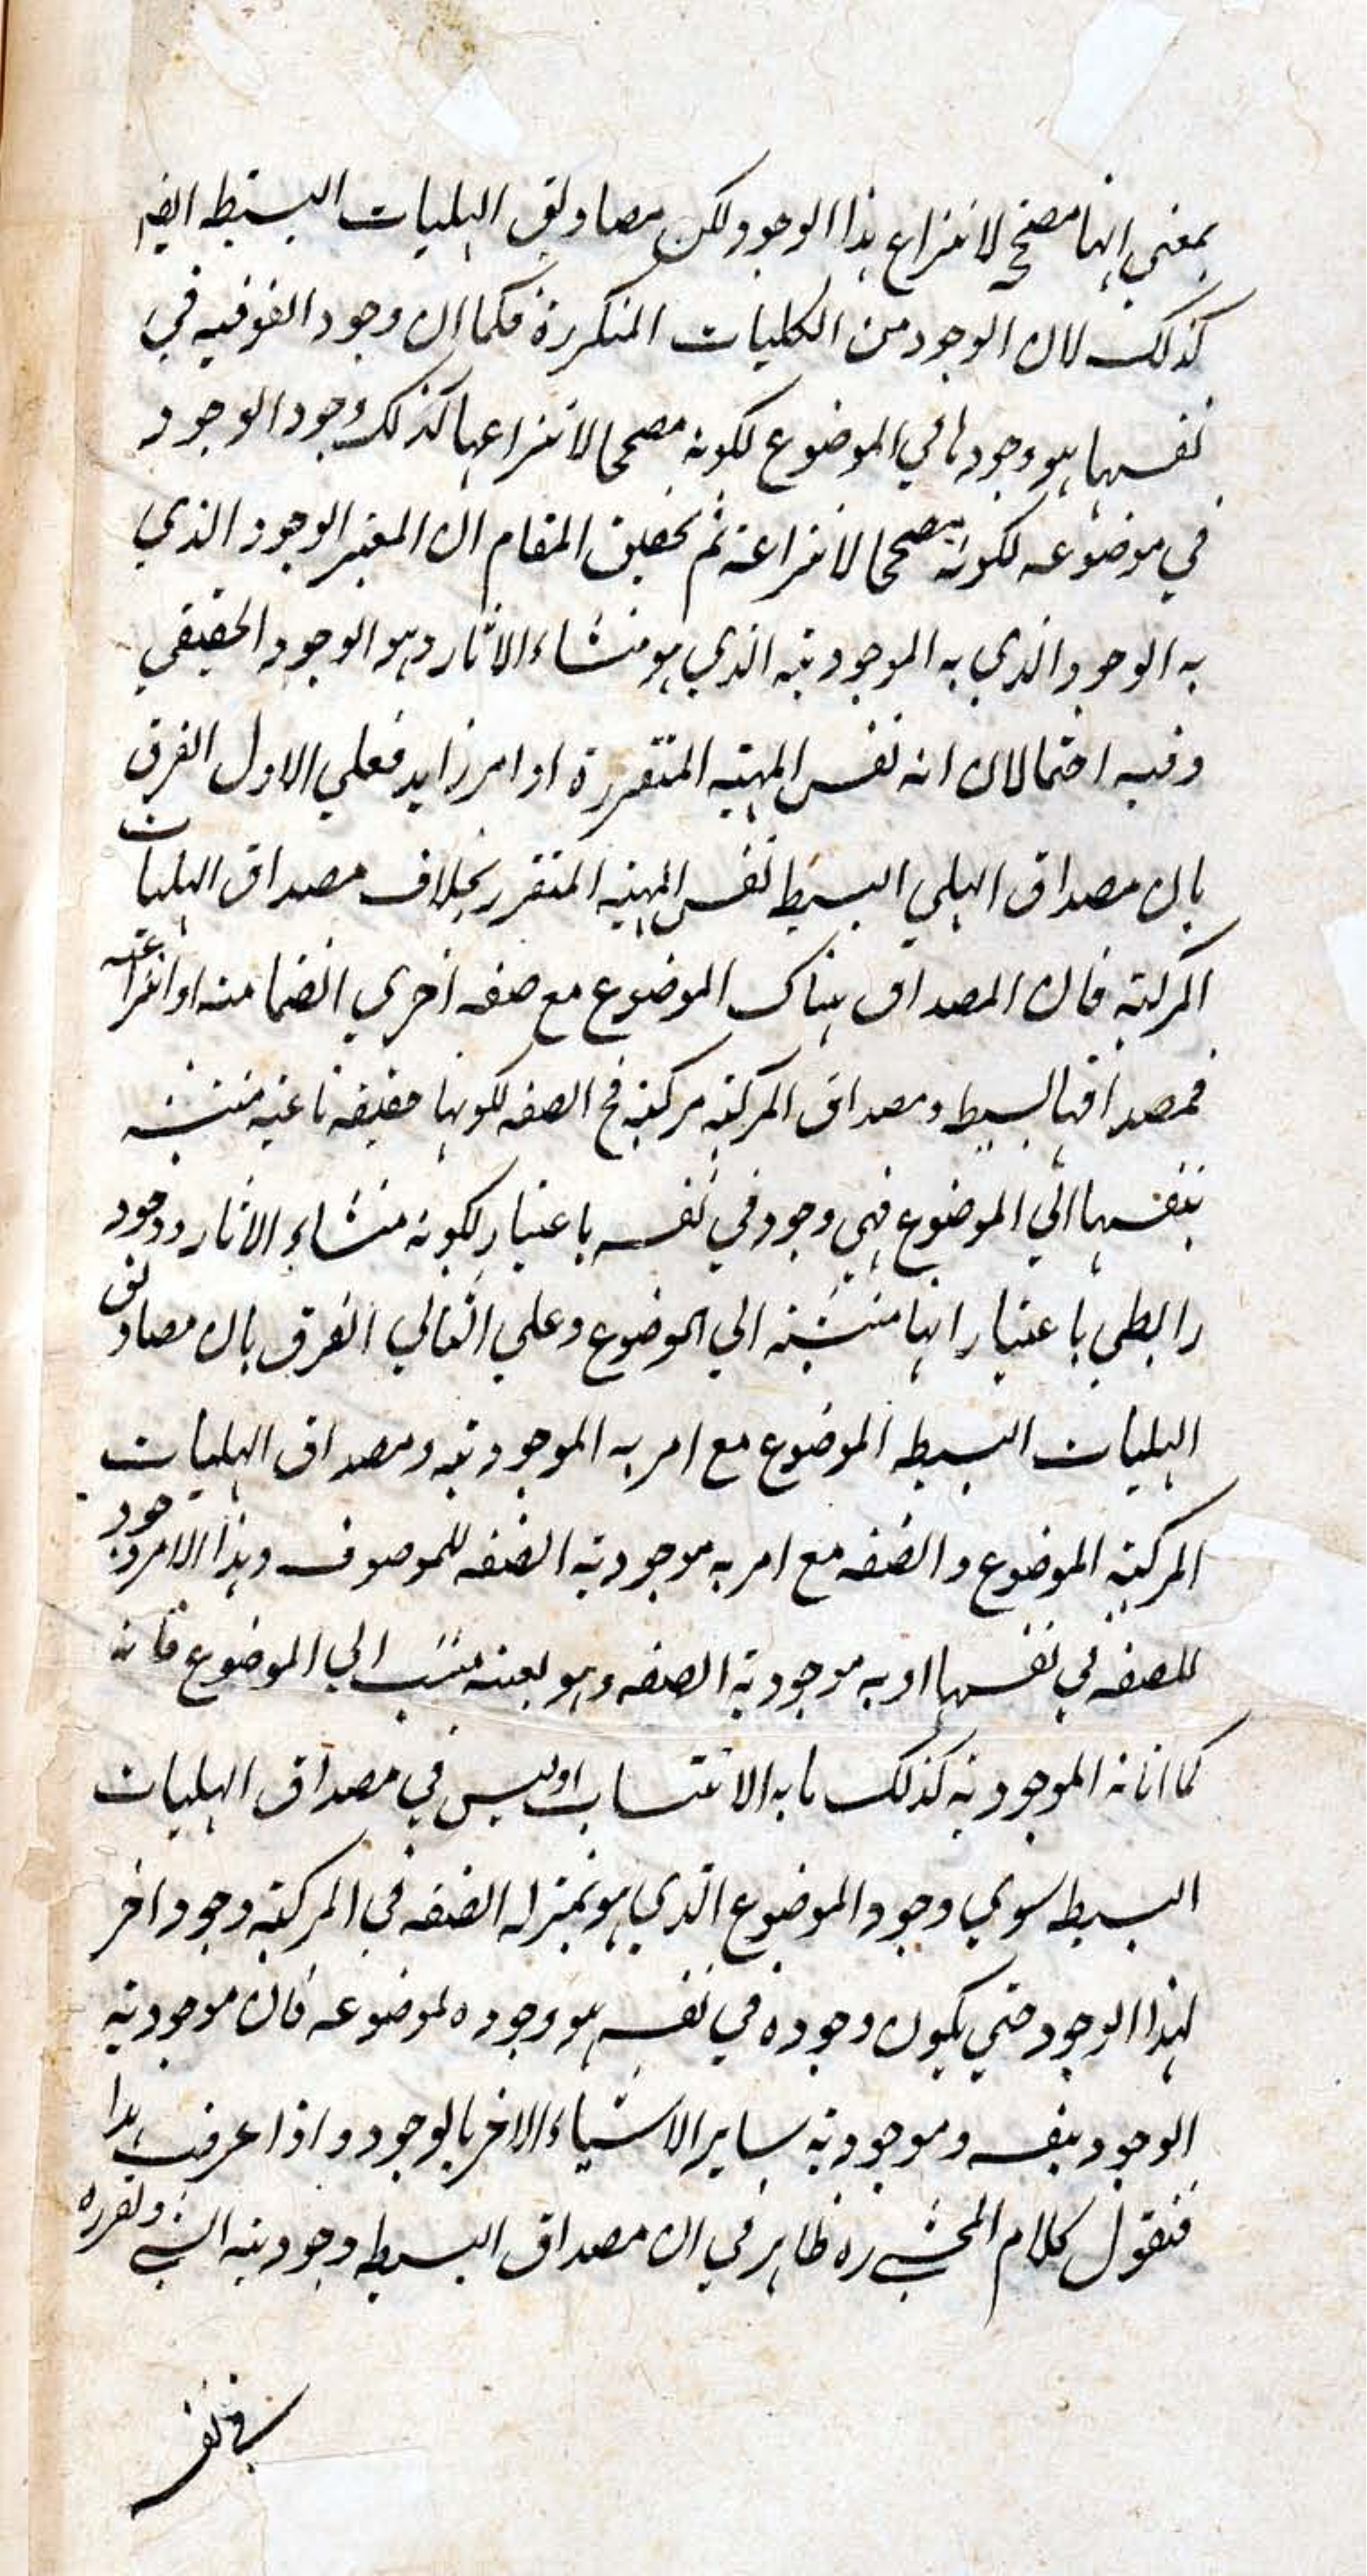 بمعني انها مصححة لانتزاع هذا الوجود ولكن مصاديق الهليات البسيطه ايضا
كذلك لان الوجود من الكليات المتكررة فكما ان وجود الفوقيه في
نفسها هو وجودها في الموضوع لكونه مصححا لانتزاعها كذلك وجود الوجود
في موضوعه لكونه مصححا لانتزاعه ثم تحقيق المقام ان المعتبر الوجود الذي
به الوجود الذي به الموجودية الذي هو منشاء الاثار وهو الوجود الحقيقي
وفيه احتمالان انه نفس المهية المتقررة او امر زايد فعلي الاول الفرق
بان مصداق الهلي البسيط نفس المهية المتقرر بخلاف مصداق الهليات
المركبة فان المصداق هناك الموضوع مع صفه اخري انضمامية او انتزاعية
فمصداقها البسيط ومصداق المركبة مركبة فح الصفه لكونها حقيقه ناعتية منتسبة
بنفسها الي الموضوع فهي وجود في نفسه باعتبار لكونه منشاء الاثار ووجود
رابطي باعتبار انها منتسبة الي الموضوع وعلي الثاني الفرق بان مصاديق
الهليات البسيطه الموضوع مع امر به الموجودية ومصداق الهليات
المركبة الموضوع والصفه مع امر به موجودية الصفه للموصوف وهذا الامر وجود
للصفه في نفسها او به موجودية الصفه وهو بعينه منتسب الي الموضوع فانه
كما انه الموجودية كذلك ما به الانتساب اوليس في مصداق الهليات
البسيطه سوي وجود الموضوع الذي هو بمنزله الصفه في المركبة وجود اخر
لهذا الوجود حتي يكون وجوده في نفسه هو وجوده لموضوعه فان موجودية
الوجود بنفسه وموجودية ساير الاشياء الاخر بالوجود واذا عرفت هذا
فنقول كلام المحشي ره ظاهر في ان مصداق البسيطه وجودية الشي وتقرره
في نفسه